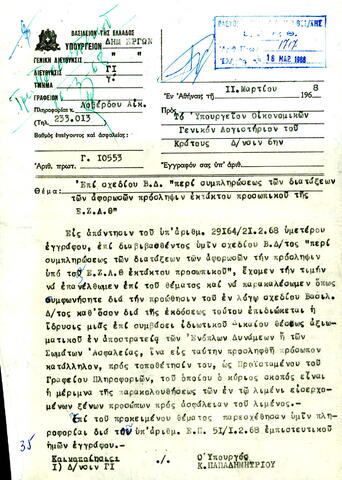 ΒΑΣΙΛΕΙΟΝ ΤΗΣ ΕΛΛΑΔΟΣ
ΥΠΟΥΡΓΕΙΟΝ ΔΗΜ ΕΡΓΩΝ
ΓΕΝΙΚΗ ΔΙΕΥΘΥΝΣΙΣ
ΔΙΕΥΘΥΝΣΙΣ ΓΙ
ΤΜΗΜΑ Υ.
ΓΡΑΦΕΙΟΝ
Πληροφορίαι κ. Λοβέρδου Αἰκ.
(Τηλ. 233.013
Βαθμὸς ἐπείγοντος καὶ ἀσφαλείας:
Ἀριθ. πρωτ. Γ. Ι0553
1717
16 ΜΑΡ. 1968
Ἐν Ἀθήναις τῇ ΙΙ.Μαρτίου 1968
Πρὸς
Τό Ὑπουργεῖον Οἰκονομικῶν
Γενικόν Λογιστήριον τοῦ
Κράτους Δ/νσιν 6ην
Ἔγγραφόν σας ὑπ' ἀριθ.
Θέμα: "Ἐπί σχεδίου Β.Δ. "περί συμπληρώσεως τῶν διατάξεων
τῶν ἀφορωσῶν πρόσληψιν ἐκτάκτου προσωπικοῦ τῆς
Ε.Ζ.Λ.Θ"
Εἰς ἀπάντησιν τοῦ ὑπ'ἀριθμ. 29Ι64/2Ι.2.68 ὑμετέρου
ἐγγράφου, ἐπί διαβιβασθέντος ὑμῖν σχεδίου Β.Δ/τος "περί
συμπληρώσεως τῶν διατάξεων τῶν ἀφορωσῶν τήν πρόσληψιν
ὑπό τοῦ Ε.Ζ.Λ.Θ ἐκτάκτου προσωπικοῦ", ἔχομεν τήν τιμήν
νά ἐπανέλθωμεν ἐπί τοῦ θέματος καί νά παρακαλέσωμεν ὅπως
συμφωνήσητε διά τήν προώθησιν τοῦ ἐν λόγῳ σχεδίου Βασιλ.
Δ/τος καθ'ὅσον διά τῆς ἐκδόσεως τούτου ἐπιδιώκεται ἡ
ἵδρυσις μιᾶς ἐπί συμβάσει ἰδιωτικοῦ Δικαίου θέσεως ἀξιω-
ματικοῦ ἐν ἀποστρατείᾳ τῶν Ἐνόπλων Δυνάμεων ἤ τῶν
Σωμάτων Ἀσφαλείας, ἵνα εἰς ταύτην προσληφθῇ πρόσωπον
κατάλληλον, πρός τοποθέτησίν του, ὡς Προϊσταμένου τοῦ
Γραφείου Πληροφοριῶν, τοῦ ὁποίου ὁ κύριος σκοπός εἶναι
ἡ μέριμνα τῆς παρακολουθήσεως τῶν ἐν τῷ λιμένι εἰσερχο-
μένων ξένων προσώπων πρός ἀσφάλειαν τοῦ λιμένος.
Ἐπί τοῦ προκειμένου θέματος παρεσχέθησαν ὑμῖν πλη-
ροφορίαι διά τοῦ ὑπ'ἀριθμ. Ε.Π. 5Ι/Ι.2.68 ἐμπιστευτικοῦ
ἡμῶν ἐγγράφου.-
35
Κοινοποίησις ./. Ὁ Ὑπουργός
Ι) Δ/νσιν ΓΙ Κ. ΠΑΠΑΔΗΜΗΤΡΙΟΥ